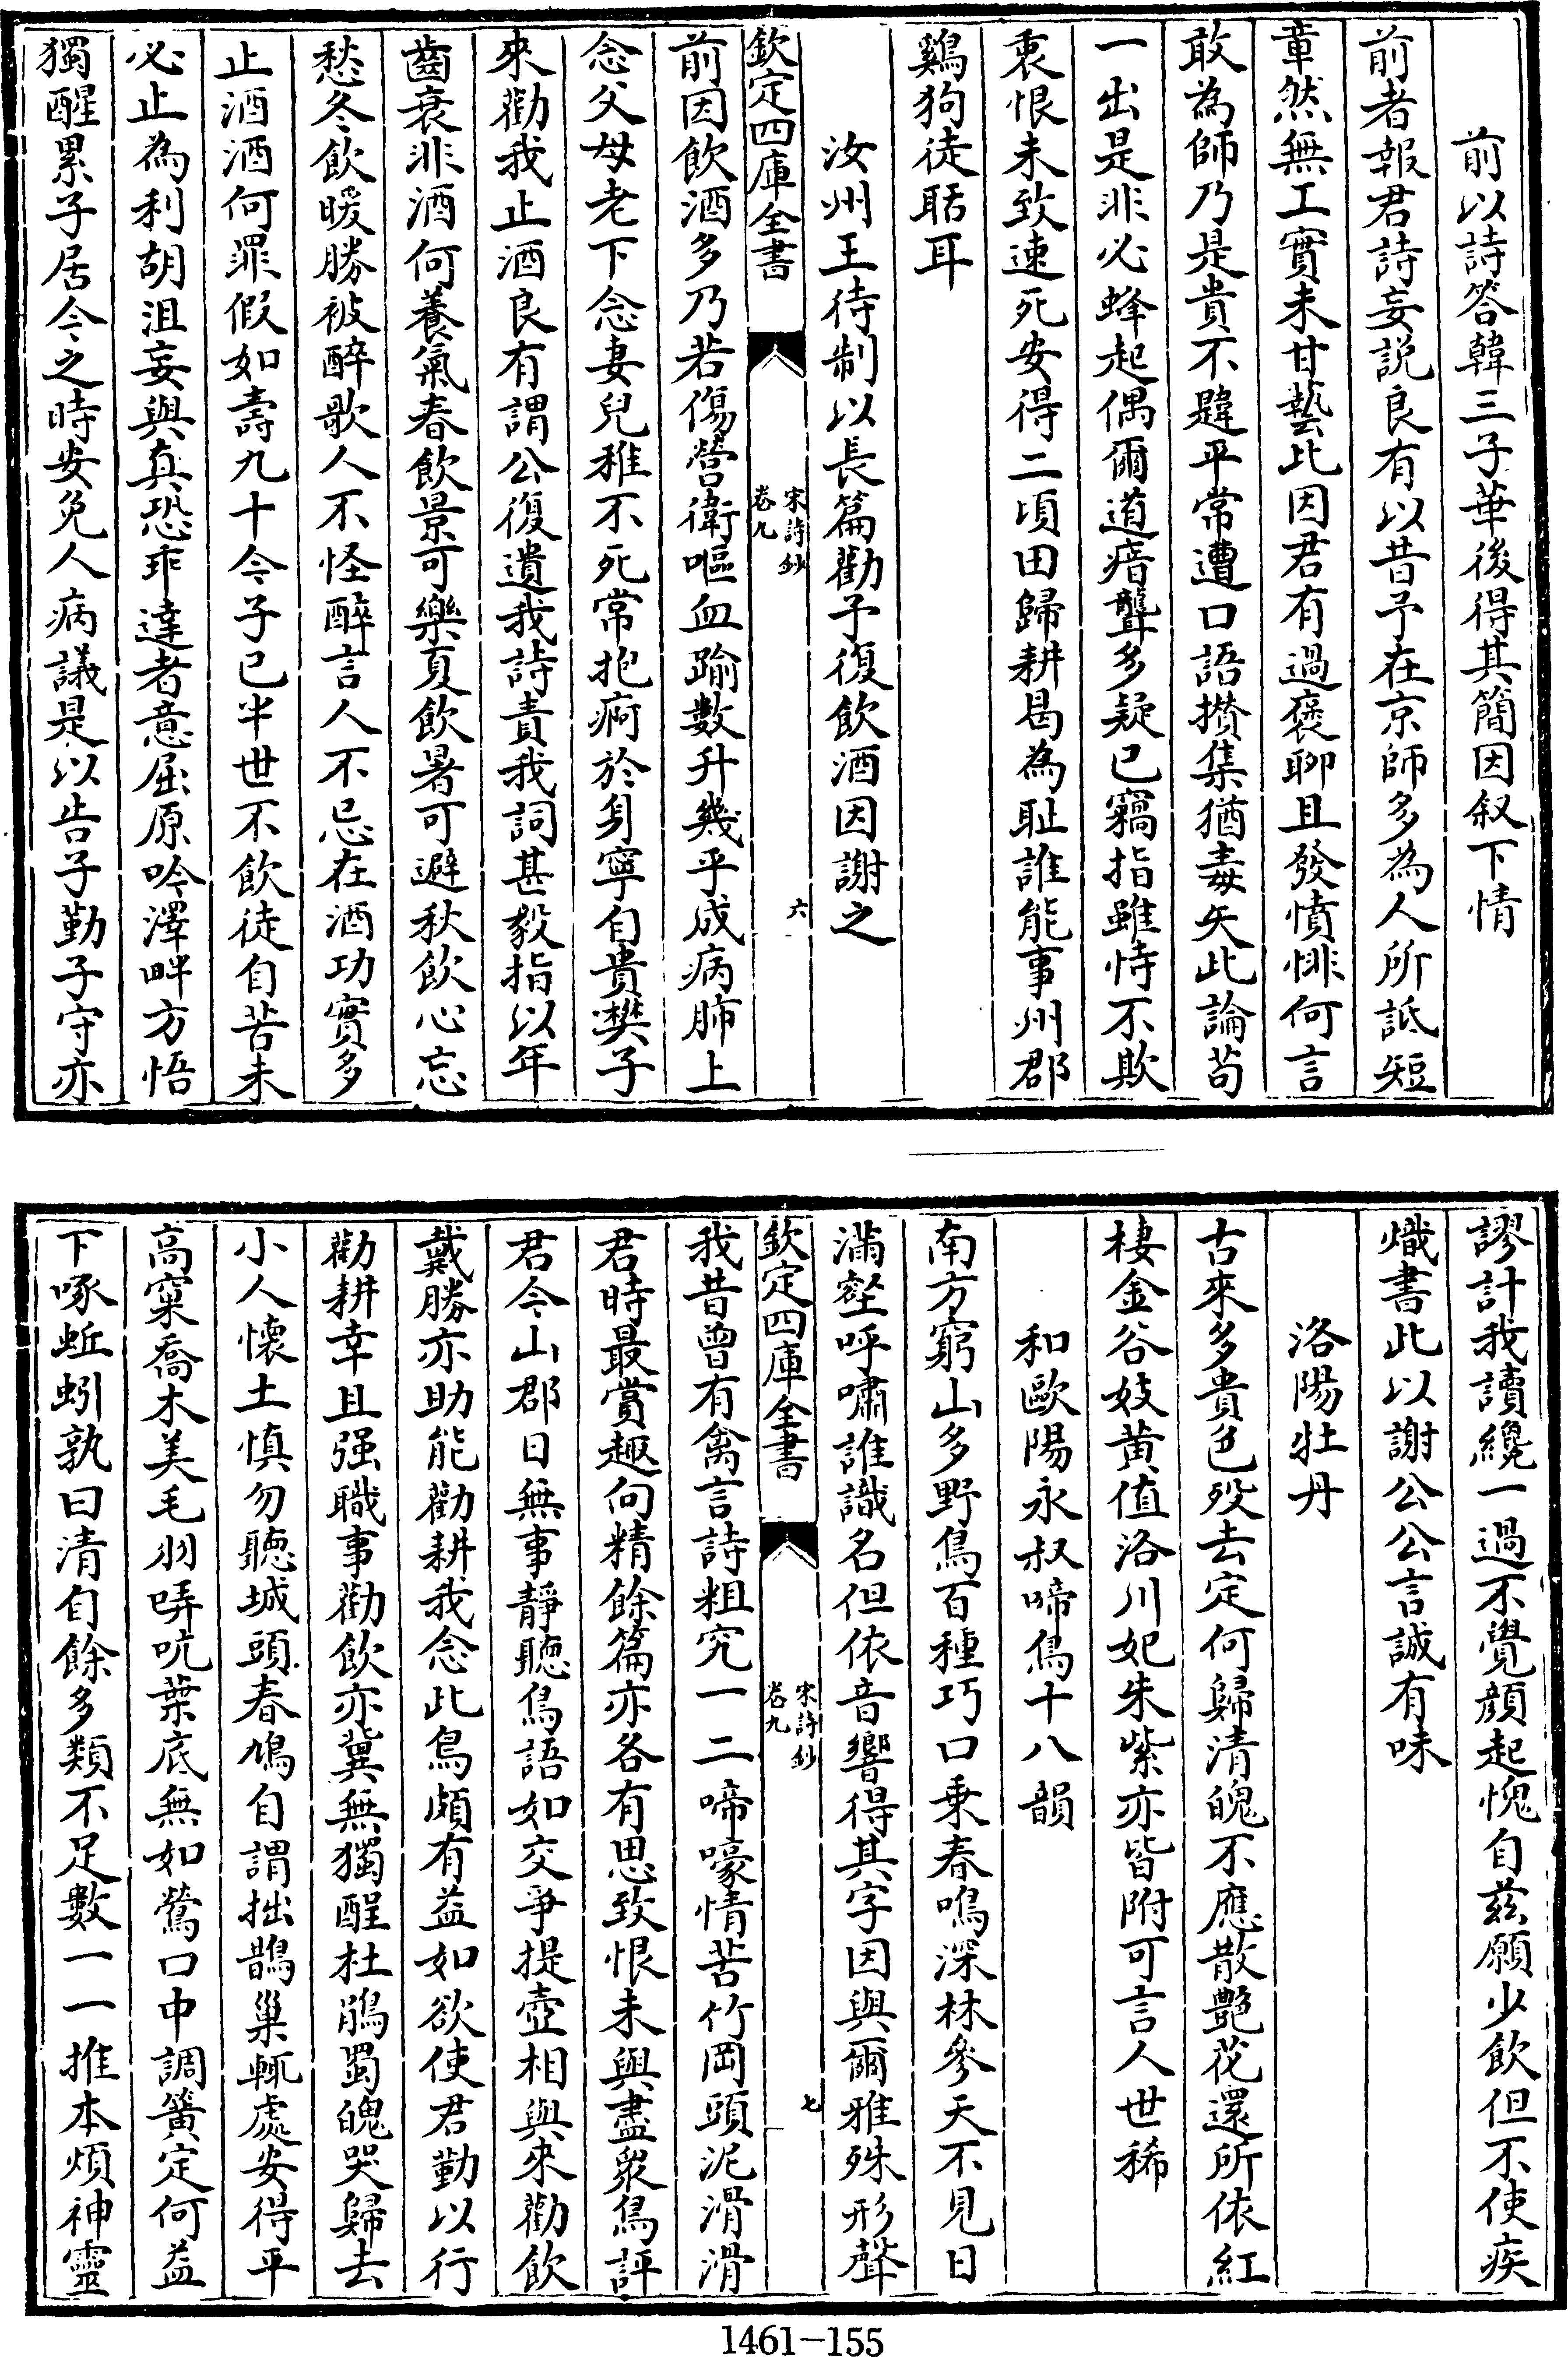 前以詩答韓三子華後得其簡因叙下情
前者報君詩妄説良有以昔予在京師多為人所詆短
章然無工實未甘藝此因君有過褒聊且發憤悱何言
敢為師乃是貴不韙平常遭口語攅集猶毒矢此論茍
一出是非必蜂起偶爾道瘖聾多疑已竊指雖恃不欺
衷恨未致速死安得二頃田歸耕曷為耻誰能事州郡
鷄狗徒聒耳
汝州王待制以長篇勸予復飲酒因謝之
欽定四庫全書
宋詩鈔
卷九
六
前因飲酒多乃若傷營衛嘔血踰數升幾乎成病肺上
念父母老下念妻兒稚不死常抱痾於身寧自貴樊子
來勸我止酒良有謂公復遺我詩責我詞甚毅指以年
齒衰非酒何養氣春飲景可樂夏飲暑可避秋飲心忘
愁冬飲暖勝被醉歌人不怪醉言人不忌在酒功實多
止酒酒何罪假如壽九十今子已半世不飲徒自苦未
必止為利胡沮妄與真恐乖達者意屈原吟澤畔方悟
獨醒累子居今之時安免人病議是以告子勤子守亦
謬計我讀纔一過不覺顔起愧自兹願少飲但不使疾
熾書此以謝公公言誠有味
洛陽牡丹
古來多貴色殁去定何歸清魄不應散艷花還所依紅
棲金谷妓黄值洛川妃朱紫亦皆附可言人世稀
和歐陽永叔啼鳥十八韻
南方窮山多野鳥百種巧口乗春鳴深林參天不見日
滿壑呼嘯誰識名但依音響得其字因與爾雅殊形聲
欽定四庫全書
宋詩鈔
卷九
七
我昔曾有禽言詩粗究一二啼嚎情苦竹岡頭泥滑滑
君時最賞趣向精餘篇亦各有思致恨未與盡衆鳥評
君今山郡日無事靜聽鳥語如交爭提壺相與來勸飲
戴勝亦助能勸耕我念此鳥頗有益如欲使君勤以行
勸耕幸且强職事勸飲亦冀無獨酲杜鵑蜀魄哭歸去
小人懷土慎勿聽城頭春鳩自謂拙鵲巢輒處安得平
高窠喬木美毛羽哢吭葉底無如鶯口中調簧定何益
下啄蚯蚓孰曰清自餘多類不足數一一推本煩神靈
1461-155